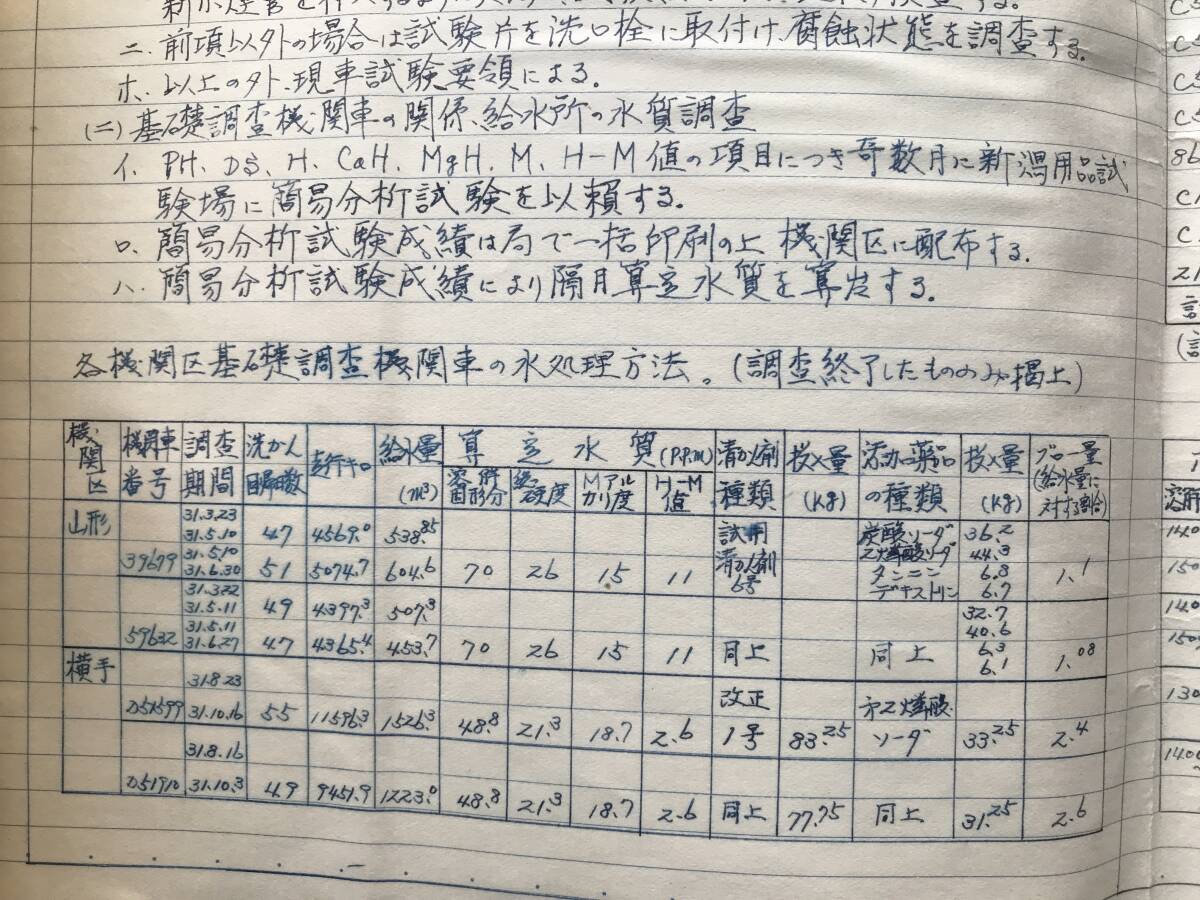 ニ、前項以外の場合は試験片を洗口栓に取付け、腐蝕状態を調査する。
ホ、以上の外、現車試験要領による。
(二)基礎調査機関車の関係、給水所の水質調査
イ、PH、DS、H、CaH、MgH、M、H-M値の項目につき奇数月に新潟用品試
験場に簡易分析試験を以頼する。
ロ、簡易分析試験成績は局で一括印刷の上機関区に配布する。
ハ、簡易分析試験成績により隔月算定水質を算出する。
各機関区基礎調査機関車の水処理方法。(調査終了したもののみ掲上)
機関区 機関車番号 調査期間 洗かん回帰日数 走行キロ 給水量(m³) 算定水質(P.P.m) 清かん剤種類 投入量(kg) 添加薬品の種類 投入量(kg) ブロー量(給水量に対する割合)
溶解固形分 総硬度 Mアルカリ度 H-M値
山形 31.3.23 31.5.10 47 4569.0 538.85 試用 炭酸ソーダ 36.2
第二燐酸ソーダ 44.3
39679 31.5.10 31.6.30 51 5074.7 604.6 70 26 15 11 清かん剤6号 タンニン 6.3 1.1
デキストリン 6.7
31.3.22 31.5.11 49 4397.3 507.3 32.7
40.6
59632 31.5.11 31.6.27 47 4365.4 453.7 70 26 15 11 同上 同上 6.3 1.08
6.1
横手 31.8.23 改正 第二燐酸
D51599 31.10.16 55 11596.3 1526.3 48.8 21.3 18.7 2.6 1号 83.25 ソーダ 33.25 2.4
31.8.16
D51910 31.10.3 49 9451.9 1223.0 48.8 21.3 18.7 2.6 同上 77.75 同上 31.25 2.6